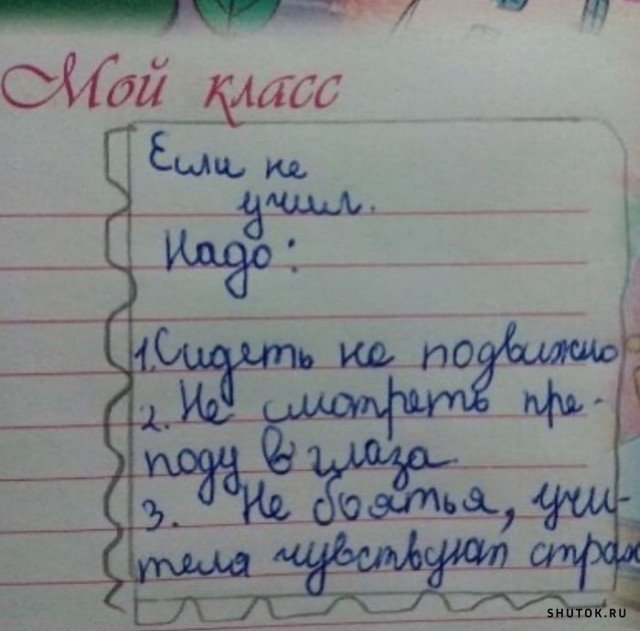 Мой класс
Если не
учил.
Надо:
1. Сидеть не подвижно
2. Не смотреть пре-
поду в глаза
3. Не боятья, учи-
теля чувствуют страх
SHUTOK.RU